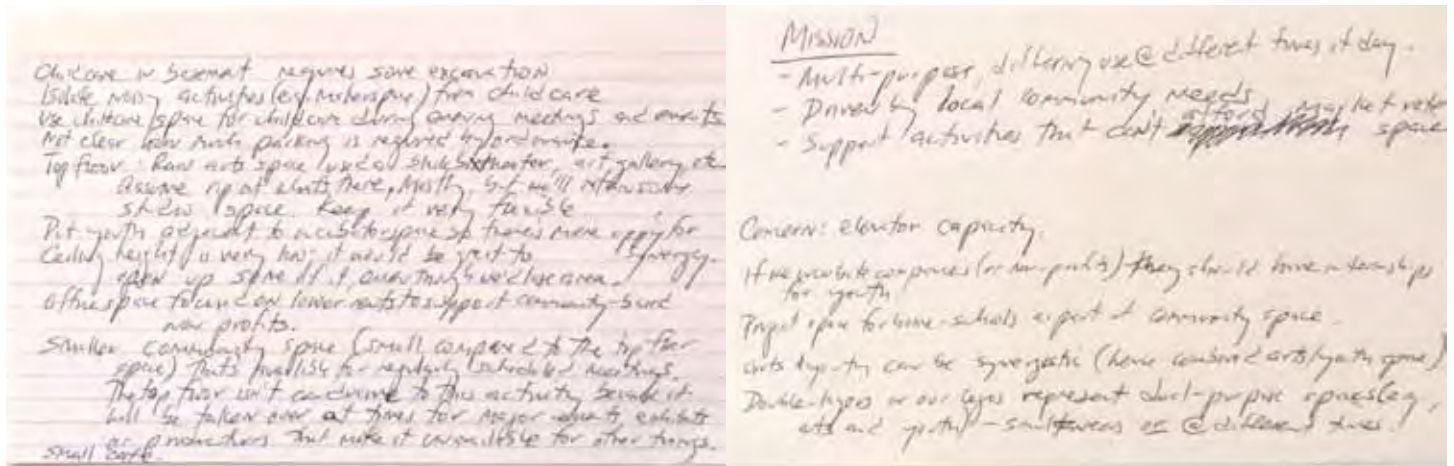 Childcare in basement requires some excavation
Isolate noisy activities (e.g. makerspace) from child care
Use childcare space for childcare during evening meetings and events
Not clear how much parking is required by ordinance.
Top floor: Raw arts space used as studios, theater, art gallery, etc.
Assume rip out what's there, mostly, but we'll retain some
studio space. Keep it very flexible.
Put youth adjacent to incubator space so there's more oppty for
synergy.
Ceiling height is very low; it would be great to
open up some of it even though we'd lose area.
Office space focused on lower rents to support community-based
non profits.
Smaller community space (small compared to the top floor
space) that's available for regularly scheduled meetings.
The top floor isn't conducive to this activity because it
will be taken over at times for major events, exhibits
or productions that make it unavailable for other things.
Small café.
MISSION
- Multi-purpose, differing use @ different times of day.
- Driven by local community needs
- Support activities that can't afford market rate space
Concern: elevator capacity.
If we incubate companies (or non-profits) they should have internships
for youth
space for home-schools as part of community space.
arts & youth can be synergistic (hence combined arts/youth space)
Double-layers on our legos represent dual-purpose spaces (e.g.,
arts and youth) - simultaneous or @ different times.